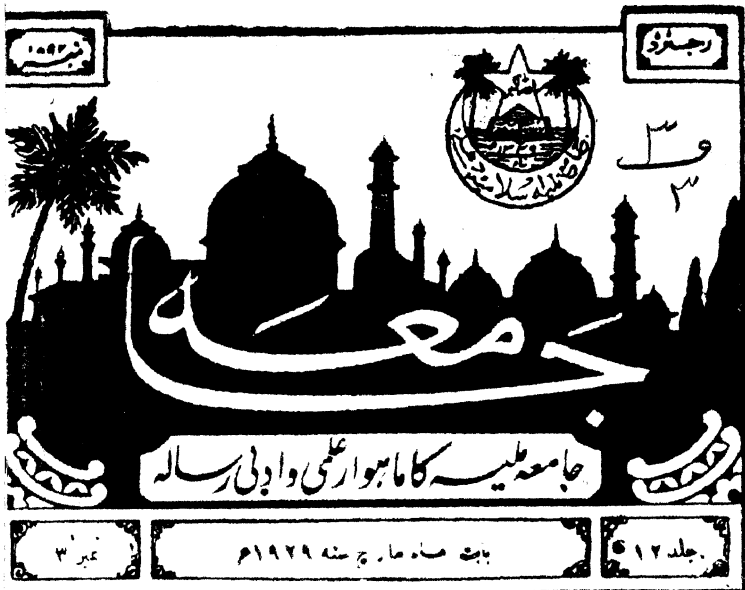 رجسٹرڈ
نمبر ۱۵۹۲
جامعہ ملیہ اسلامیہ دہلی
و ۳
۳
جامعہ
جامعہ ملیہ کا ماہوار علمی و ادبی رسالہ
جلد ۱۲
بابت ماہ مارچ سنہ ۱۹۲۹م
نمبر ۳